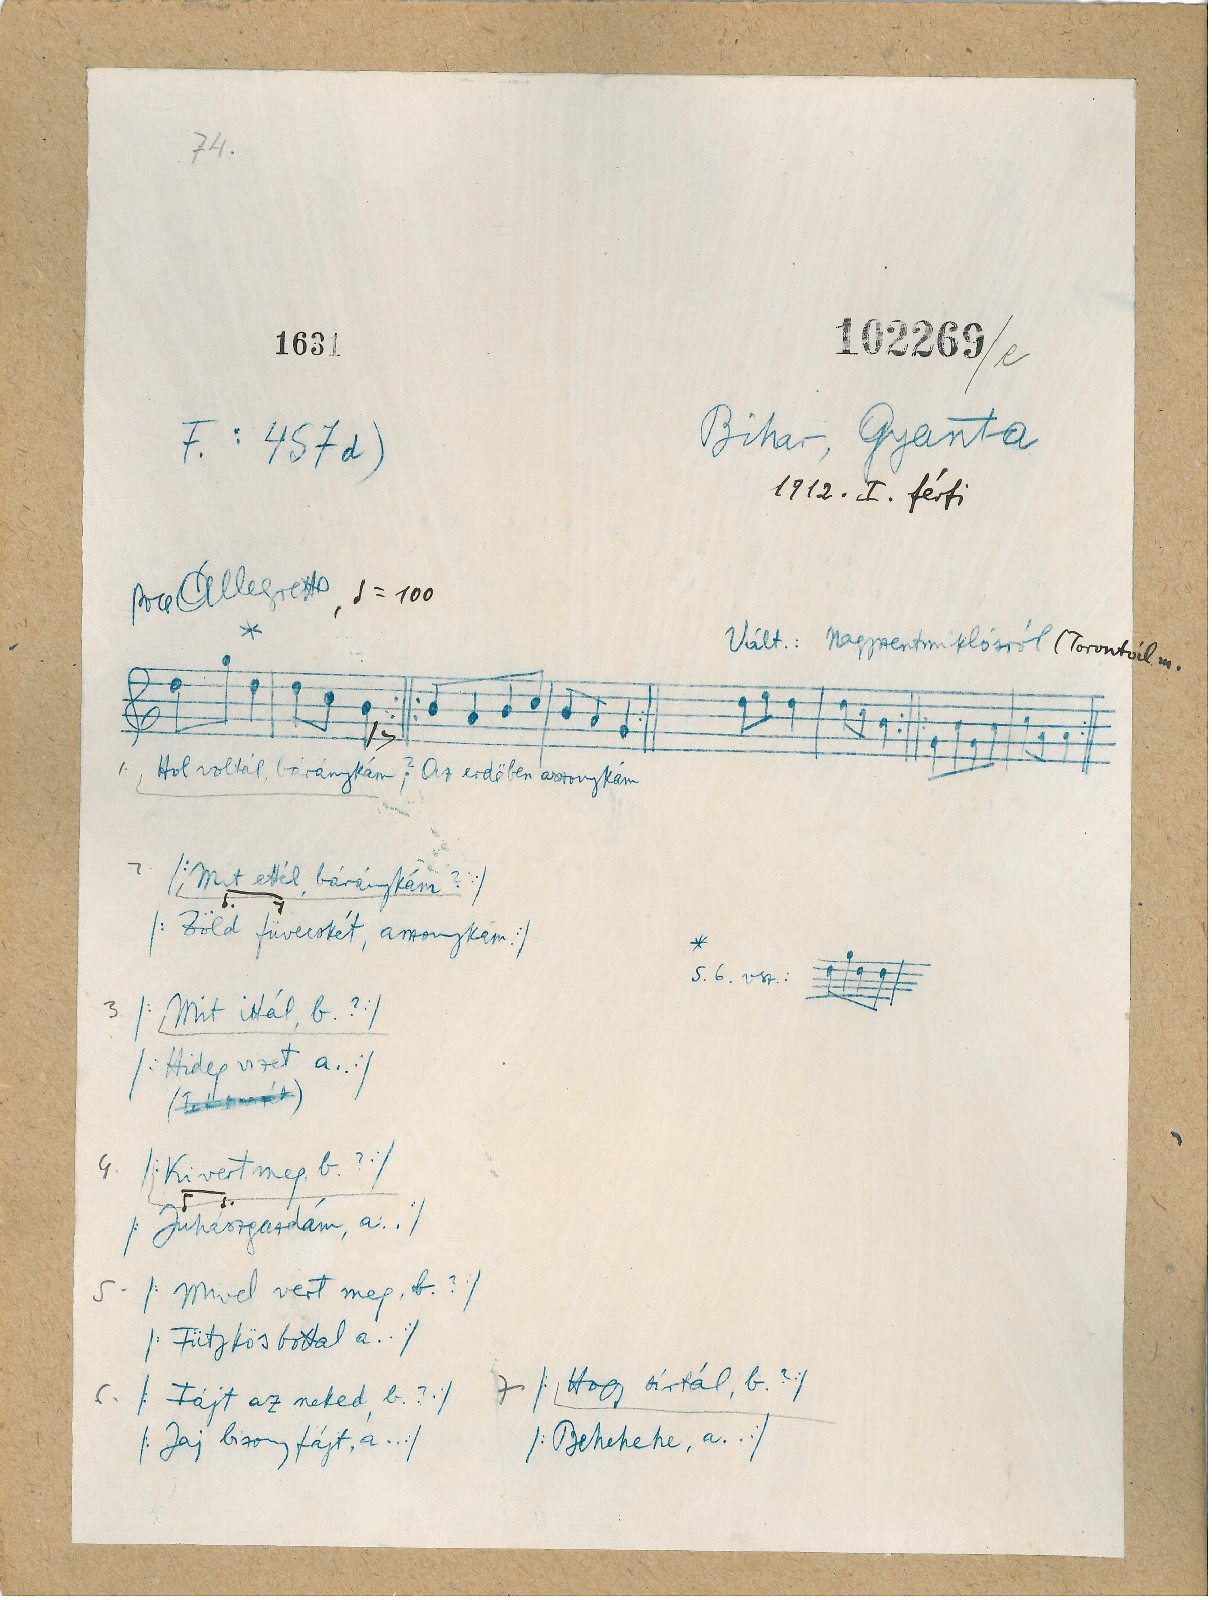 74.
1631
102269/e
F. : 457d)
Bihar, Gyanta
1912. I. férfi
poco Allegretto, ♩ = 100
*
Vált.: Nagyszentmiklósról (Torontál m.
1. Hol voltál, báránykám? Az erdőben asszonykám
2. /: Mit ettél, báránykám? :/
/: Zöld füvecskét, asszonykám :/
3. /: Mit ittál, b. ? :/
/: Hideg vizet a.. :/
4. /: Ki vert meg, b. ? :/
/: Juhászgazdám, a.. :/
*
5. 6. vsz.:
5. /: Mivel vert meg, b. ? :/
/: Fütykösbottal a.. :/
6. /: Fájt az neked, b. ? :/
/: Jaj bizony fájt, a... :/
7. /: Hogy sirtál, b. ? :/
/: Behehehe, a... :/